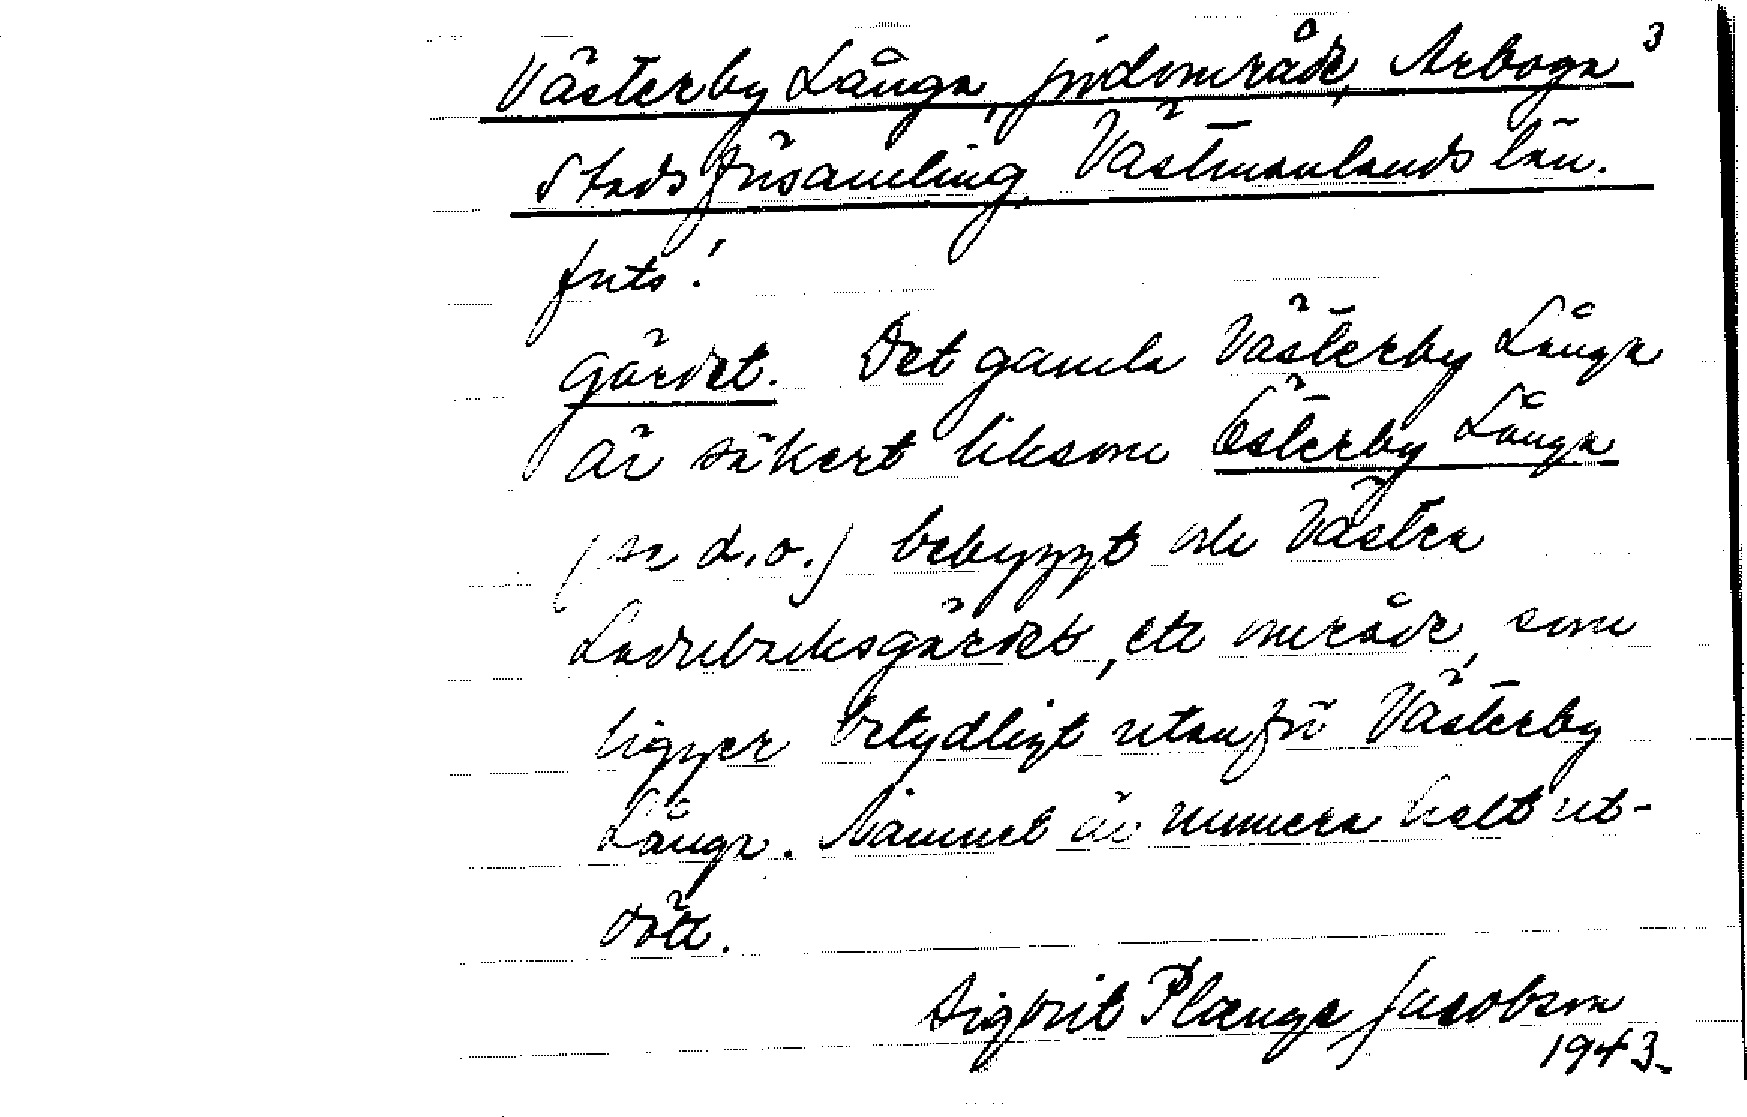 Västerby Långa, jordområde, Arboga 3
Stadsförsamling, Västmanlands län.
forts!
gärdet. Det gamla Västerby Långa
är säkert liksom Österby Långa
(se d.o.) bebyggt och Västra
Ladubacksgärdet, ett område, som
ligger betydligt utanför Västerby
Långa. Namnet är numera helt ut-
dött.
Sigbrit Plænge Jacobson
1943.